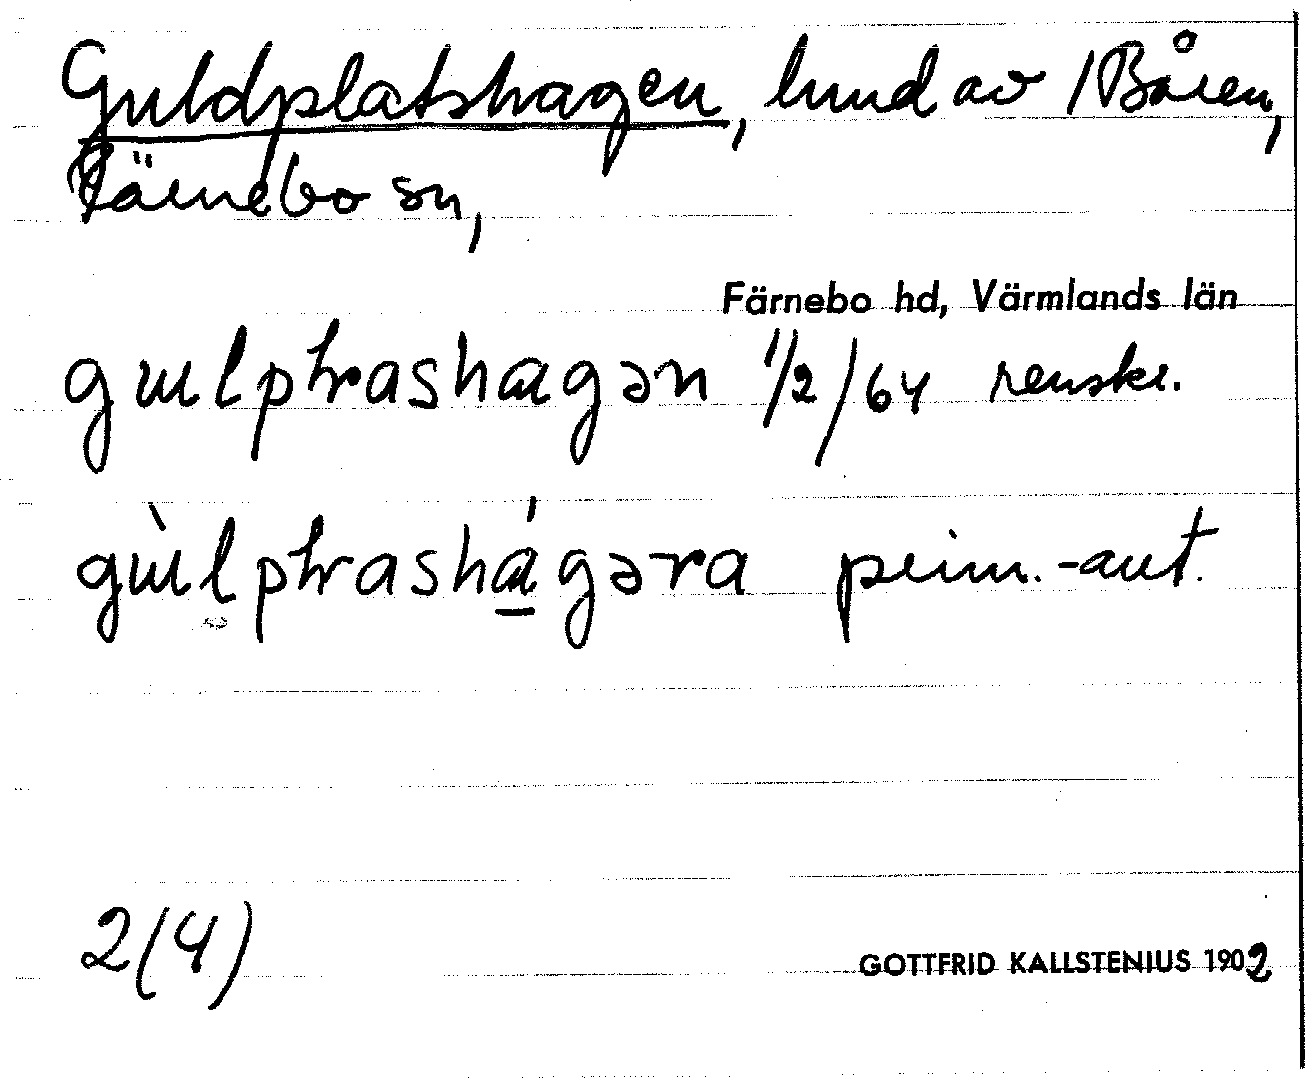 Guldplatshagen, lund av 1 Båren,
Färnebo sn,
Färnebo hd, Värmlands län
gɯlptrashagən 1/2/64 renskr.
gɯ̀lptrashágəra prim.-ant.
2(4)
GOTTFRID KALLSTENIUS 1902